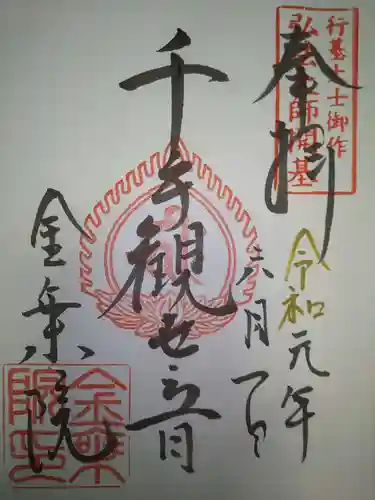 行基大士御作
弘法大師開基
奉拝
令和元年
六月一日
千手観世音
金乗院